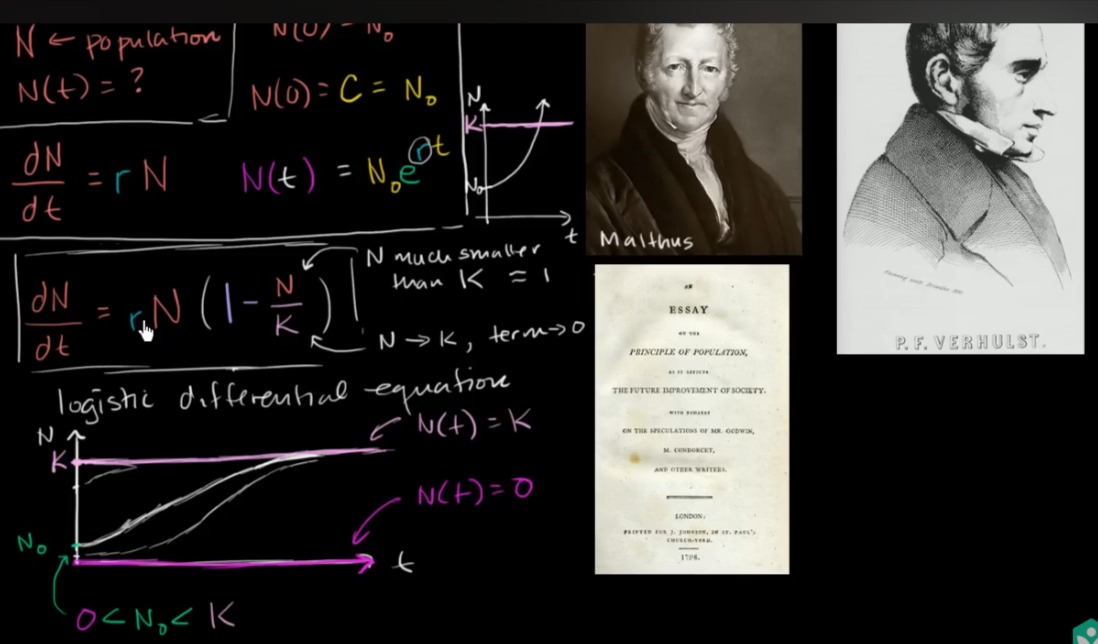 N ← population
N(t) = ?
N(0) = N₀
N(0) = C = N₀
dN/dt = rN
N(t) = N₀e^rt
N
K
N₀
t
dN/dt = rN (1 - N/K)
N much smaller
than K ≈ 1
N → K, term → 0
logistic differential equation
N
K
N(t) = K
N(t) = 0
N₀
t
0 < N₀ < K
Malthus
AN
ESSAY
ON THE
PRINCIPLE OF POPULATION,
AS IT AFFECTS
THE FUTURE IMPROVEMENT OF SOCIETY.
WITH REMARKS
ON THE SPECULATIONS OF MR. GODWIN,
M. CONDORCET,
AND OTHER WRITERS.
LONDON:
PRINTED FOR J. JOHNSON, IN ST. PAUL'S
CHURCH-YARD.
1798.
P. F. VERHULST.